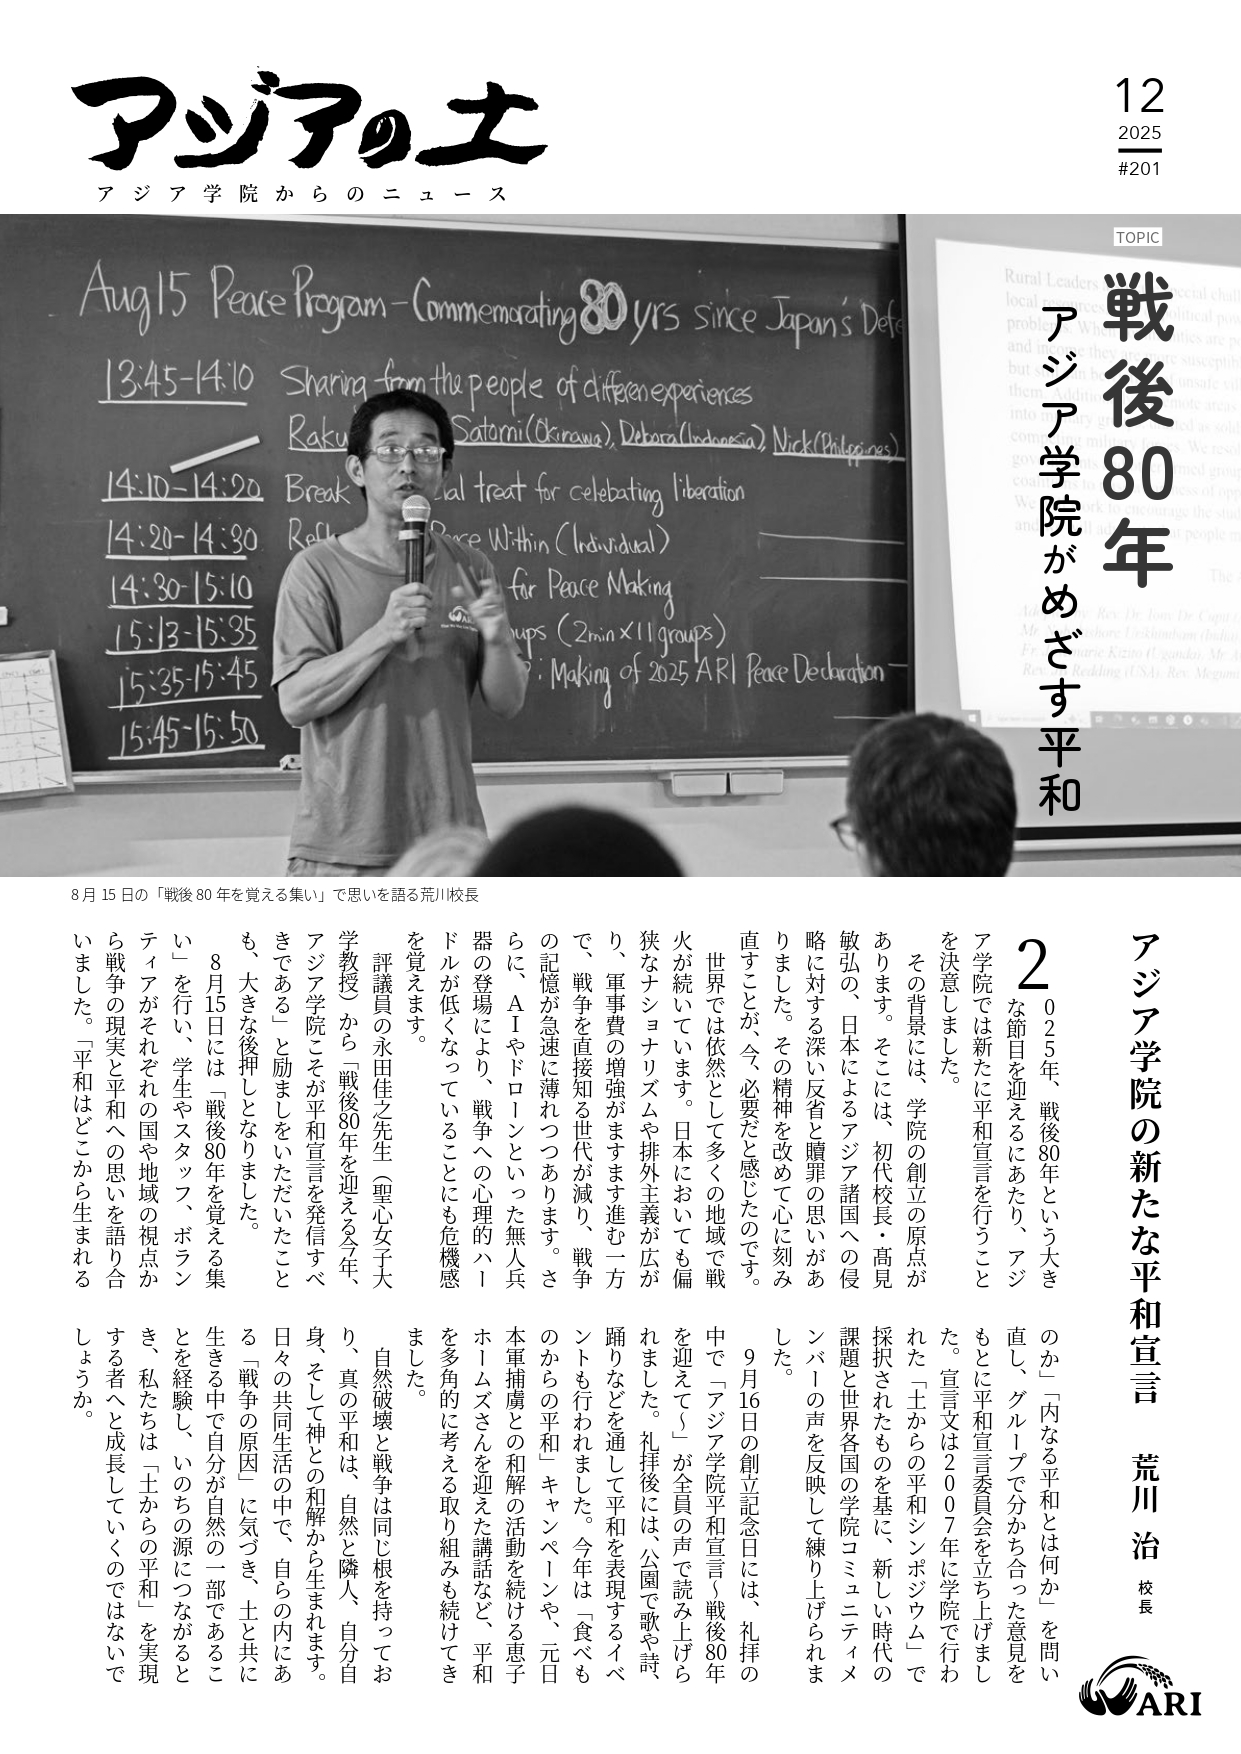 アジアの土
アジア学院からのニュース
12
2025
#201
TOPIC
戦後80年
アジア学院がめざす平和
Aug 15 Peace Program - Commemorating 80 yrs since Japan's Defe
13:45-14:10 Sharing from the people of different experiences
Raku Satomi (Okinawa), Debora (Indonesia), Nick (Philippines)
14:10-14:20 Break ial treat for celebating liberation
14:20-14:30 Refl Peace Within (Individual)
14:30-15:10 for Peace Making
15:13-15:35 oups (2min×11groups)
15:35-15:45 : Making of 2025 ARI Peace Declaration
15:45-15:50
Rural Leaders
local resources
8月15日の「戦後80年を覚える集い」で思いを語る荒川校長
アジア学院の新たな平和宣言 荒川 治 校長
2025年、戦後80年という大き
な節目を迎えるにあたり、アジ
ア学院では新たに平和宣言を行うこと
を決意しました。
その背景には、学院の創立の原点が
あります。そこには、初代校長・髙見
敏弘の、日本によるアジア諸国への侵
略に対する深い反省と贖罪の思いがあ
りました。その精神を改めて心に刻み
直すことが、今、必要だと感じたのです。
世界では依然として多くの地域で戦
火が続いています。日本においても偏
狭なナショナリズムや排外主義が広が
り、軍事費の増強がますます進む一方
で、戦争を直接知る世代が減り、戦争
の記憶が急速に薄れつつあります。さ
らに、AIやドローンといった無人兵
器の登場により、戦争への心理的ハー
ドルが低くなっていることにも危機感
を覚えます。
評議員の永田佳之先生（聖心女子大
学教授）から「戦後80年を迎える今年、
アジア学院こそが平和宣言を発信すべ
きである」と励ましをいただいたこと
も、大きな後押しとなりました。
8月15日には「戦後80年を覚える集
い」を行い、学生やスタッフ、ボラン
ティアがそれぞれの国や地域の視点か
ら戦争の現実と平和への思いを語り合
いました。「平和はどこから生まれる
のか」「内なる平和とは何か」を問い
直し、グループで分かち合った意見を
もとに平和宣言委員会を立ち上げまし
た。宣言文は2007年に学院で行わ
れた「土からの平和シンポジウム」で
採択されたものを基に、新しい時代の
課題と世界各国の学院コミュニティメ
ンバーの声を反映して練り上げられま
した。
9月16日の創立記念日には、礼拝の
中で「アジア学院平和宣言～戦後80年
を迎えて～」が全員の声で読み上げら
れました。礼拝後には、公園で歌や詩、
踊りなどを通して平和を表現するイベ
ントも行われました。今年は「食べも
のからの平和」キャンペーンや、元日
本軍捕虜との和解の活動を続ける恵子
ホームズさんを迎えた講話など、平和
を多角的に考える取り組みも続けてき
ました。
自然破壊と戦争は同じ根を持ってお
り、真の平和は、自然と隣人、自分自
身、そして神との和解から生まれます。
日々の共同生活の中で、自らの内にあ
る「戦争の原因」に気づき、土と共に
生きる中で自分が自然の一部であるこ
とを経験し、いのちの源につながると
き、私たちは「土からの平和」を実現
する者へと成長していくのではないで
しょうか。
ARI